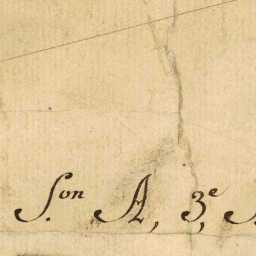 S.on A, 3.e